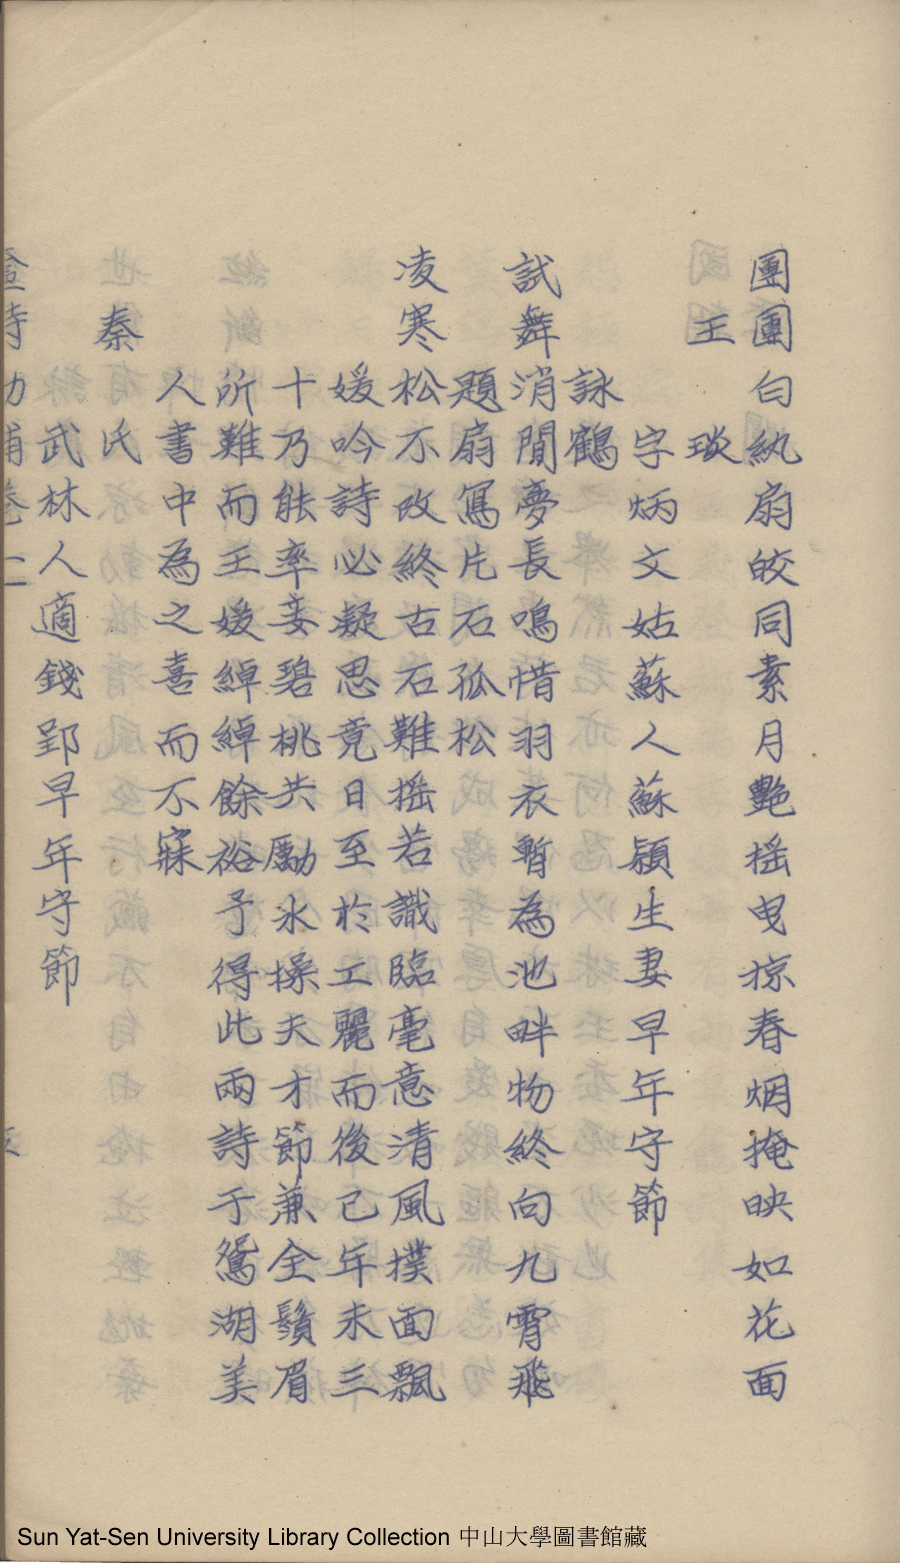 團團白紈扇皎同素月艷搖曳掠春烟掩映如花面
王　琰
字炳文姑蘇人蘇穎生妻早年守節
詠鶴
試舞消閒夢長鳴惜羽衣暫為池畔物終向九霄飛
題扇寫片石孤松
凌寒松不改終古石難搖若識臨毫意清風撲面飄
媛吟詩必凝思竟日至於工麗而後已年未三
十乃能率妾碧桃共勵冰操夫才節兼全鬚眉
所難而王媛綽綽餘裕予得此兩詩于鴛湖美
人書中為之喜而不寐
秦　氏
武林人適錢郢早年守節
詩初補卷二
Sun Yat-Sen University Library Collection 中山大學圖書館藏